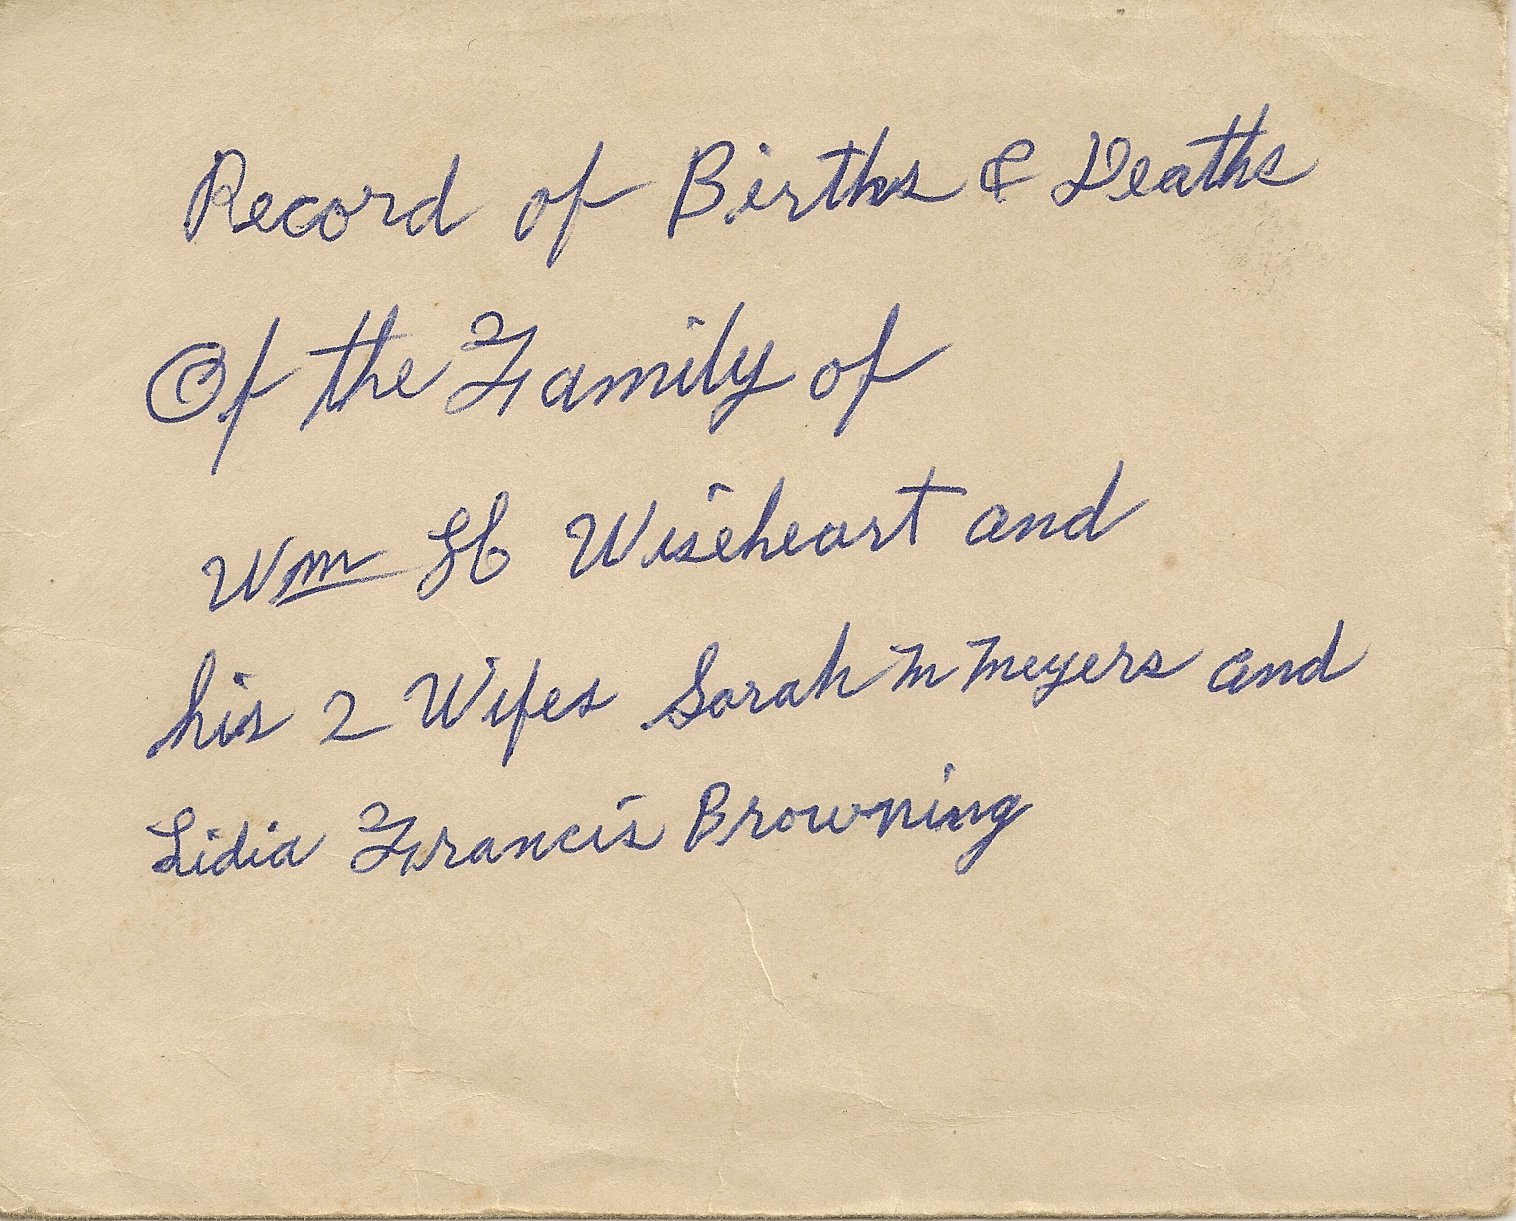 Record of Births & Deaths
Of the Family of
Wm H Wiseheart and
his 2 Wifes Sarah M Meyers and
Lidia Francis Browning